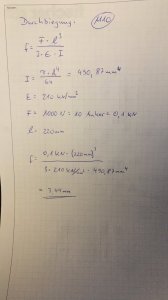 Durchbiegung:
M10
f = F · l³ / 3 · E · I
I = π · d⁴ / 64 = 490,87mm⁴
E = 210 kN/mm²
F = 1000 N = 10 = 0,1 kN
l = 220mm
f = 0,1kN · (220mm)³ / 3 · 210 kN/mm² · 490,87mm⁴
= 3,44mm